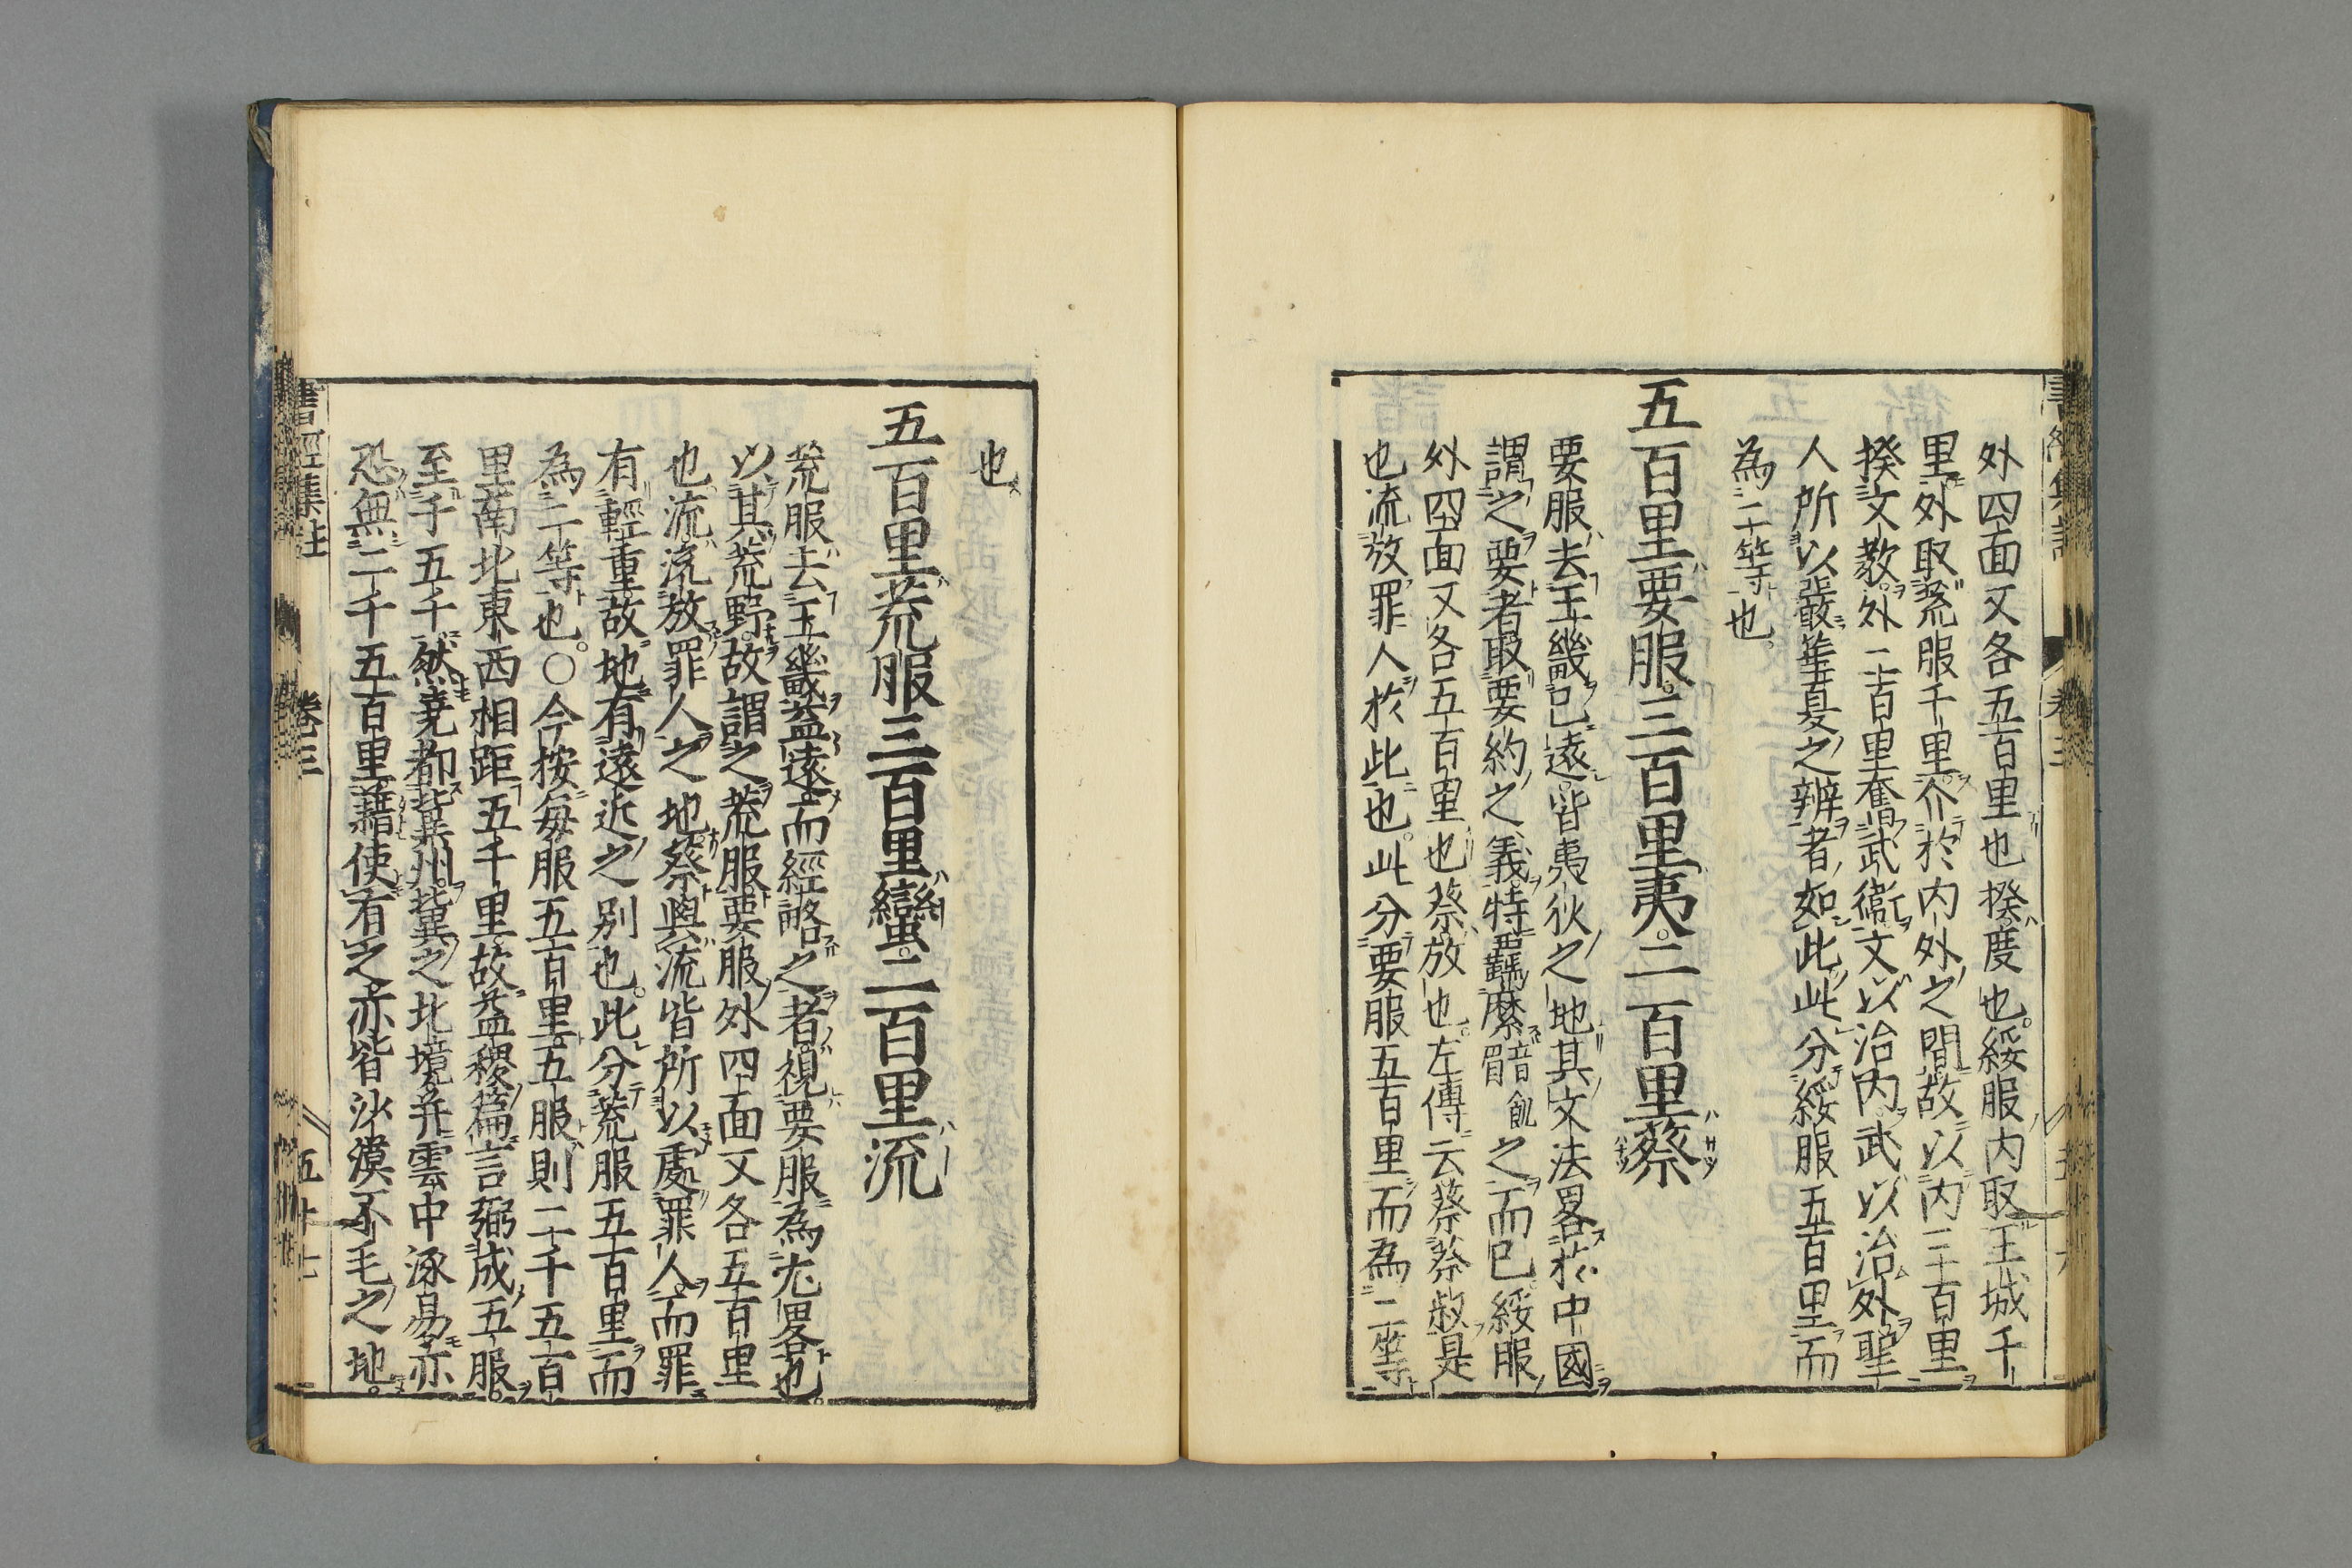 外四面又各五百里也揆度也綏服内取王城千
里外取荒服千里介於内外之間故以内三百里
揆文教外二百里奮武衛文以治内武以治外聖
人所以嚴華夏之辨者如此此分綏服五百里而
為二等也
五百里要服三百里夷二百里蔡
要服去王畿已遠皆夷狄之地其文法畧於中國
謂之要者取要約之義特羈縻之而已綏服
外四面又各五百里也蔡放也左傳云蔡蔡叔是
也流放罪人於此也此分要服五百里而為二等
也
五百里荒服三百里蠻二百里流
荒服去王畿益遠而經略之者視要服為尤畧也
以其荒野故謂之荒服要服外四面又各五百里
也流流放罪人之地蔡與流皆所以處罪人而罪
有輕重故地有遠近之別也此分荒服五百里而
為二等也○今按每服五百里五服則二千五百
里南北東西相距五千里故益稷篇言弼成五服
至于五千然堯都冀州冀之北境并雲中涿易亦
恐無二千五百里藉使有之亦皆沙漠不毛之地
書經集註 卷三 五十七